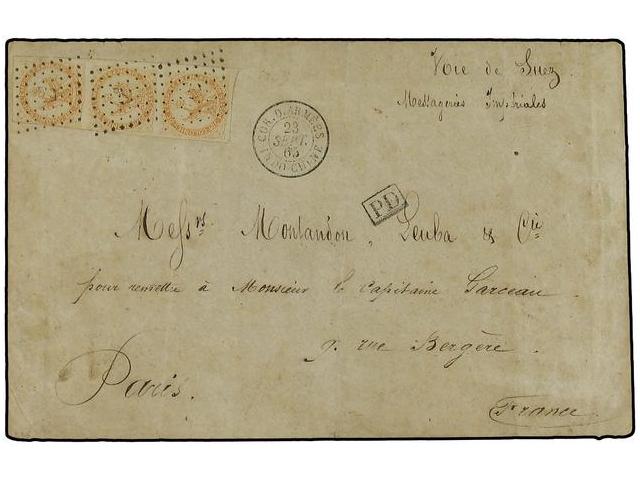 Voie de Suez
Messageries Impériales
COR. D. ARMÉES
23
SEPT.
63
INDO CHINE
PD
Messrs Montandon, Leuba & Cie
pour remettre à Monsieur le Capitaine Garceau
9. rue Bergère.
Paris.
France.